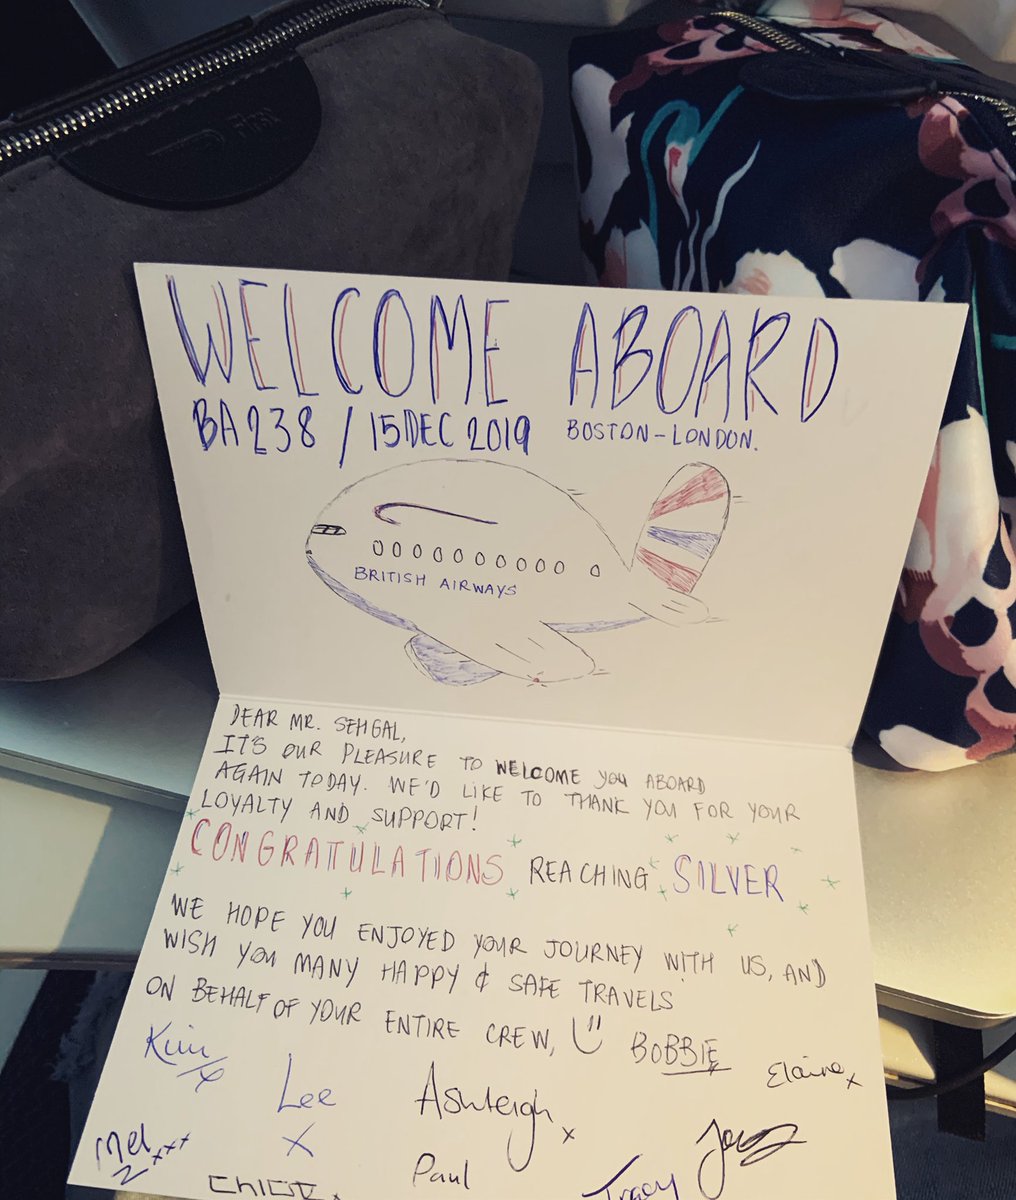 First
WELCOME ABOARD
BA238 / 15DEC 2019 BOSTON-LONDON.
BRITISH AIRWAYS
DEAR MR. SEHGAL,
IT'S OUR PLEASURE TO WELCOME YOU ABOARD
AGAIN TODAY. WE'D LIKE TO THANK YOU FOR YOUR
LOYALTY AND SUPPORT!
CONGRATULATIONS REACHING SILVER
WE HOPE YOU ENJOYED YOUR JOURNEY WITH US, AND
WISH YOU MANY HAPPY & SAFE TRAVELS
ON BEHALF OF YOUR ENTIRE CREW, BOBBIE
Kim x
Lee x
Ashleigh x
Elaine x
Mel xxx
CHLOE x
Paul
Tracy